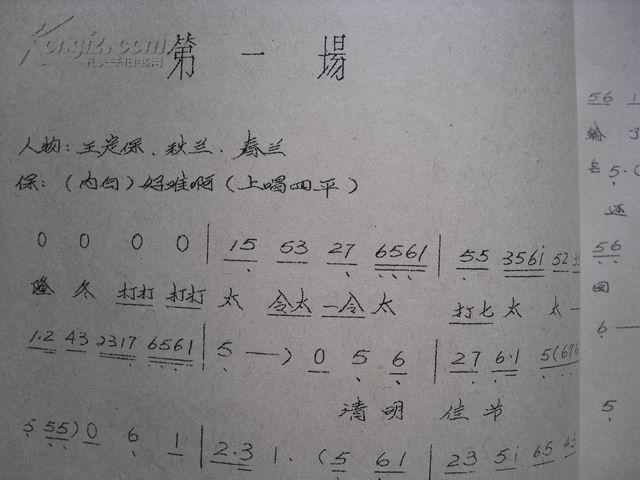 Kongfz.com
孔夫子旧书网
第一場
人物：王定保、秋兰、春兰
保：（内白）好难啊（上唱四平）
0 0 0 0 | 15 53 27 6561 | 55 356i 52
隆冬 打打 打打 太 令太 一令 太 打七 太 太 一
1·2 43 2317 6561 | 5 —） 0 5 6 | 27 6·1 5(676
清明 佳节
5 55) 0 6 1 | 2·3 1·(5 61 | 23 5i 65 43
56 1
输
5·(
还
56
回
6 —
5